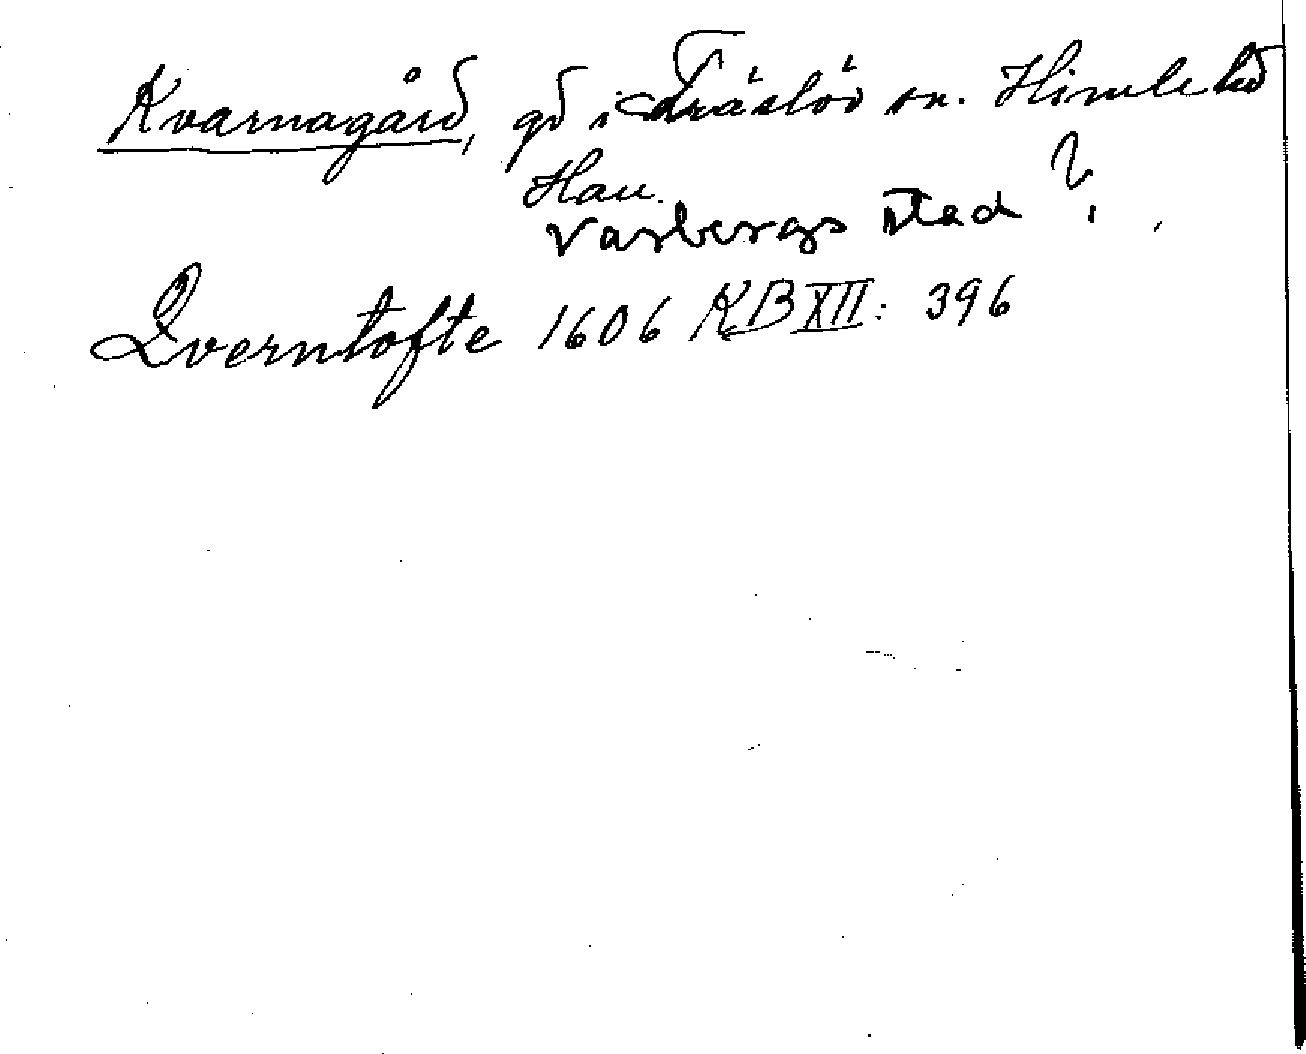 Kvarnagård, gd i Träslöv sn. Himle hd
Hall.
Varbergs stad ?
Qverntofte 1606 KB XII: 396